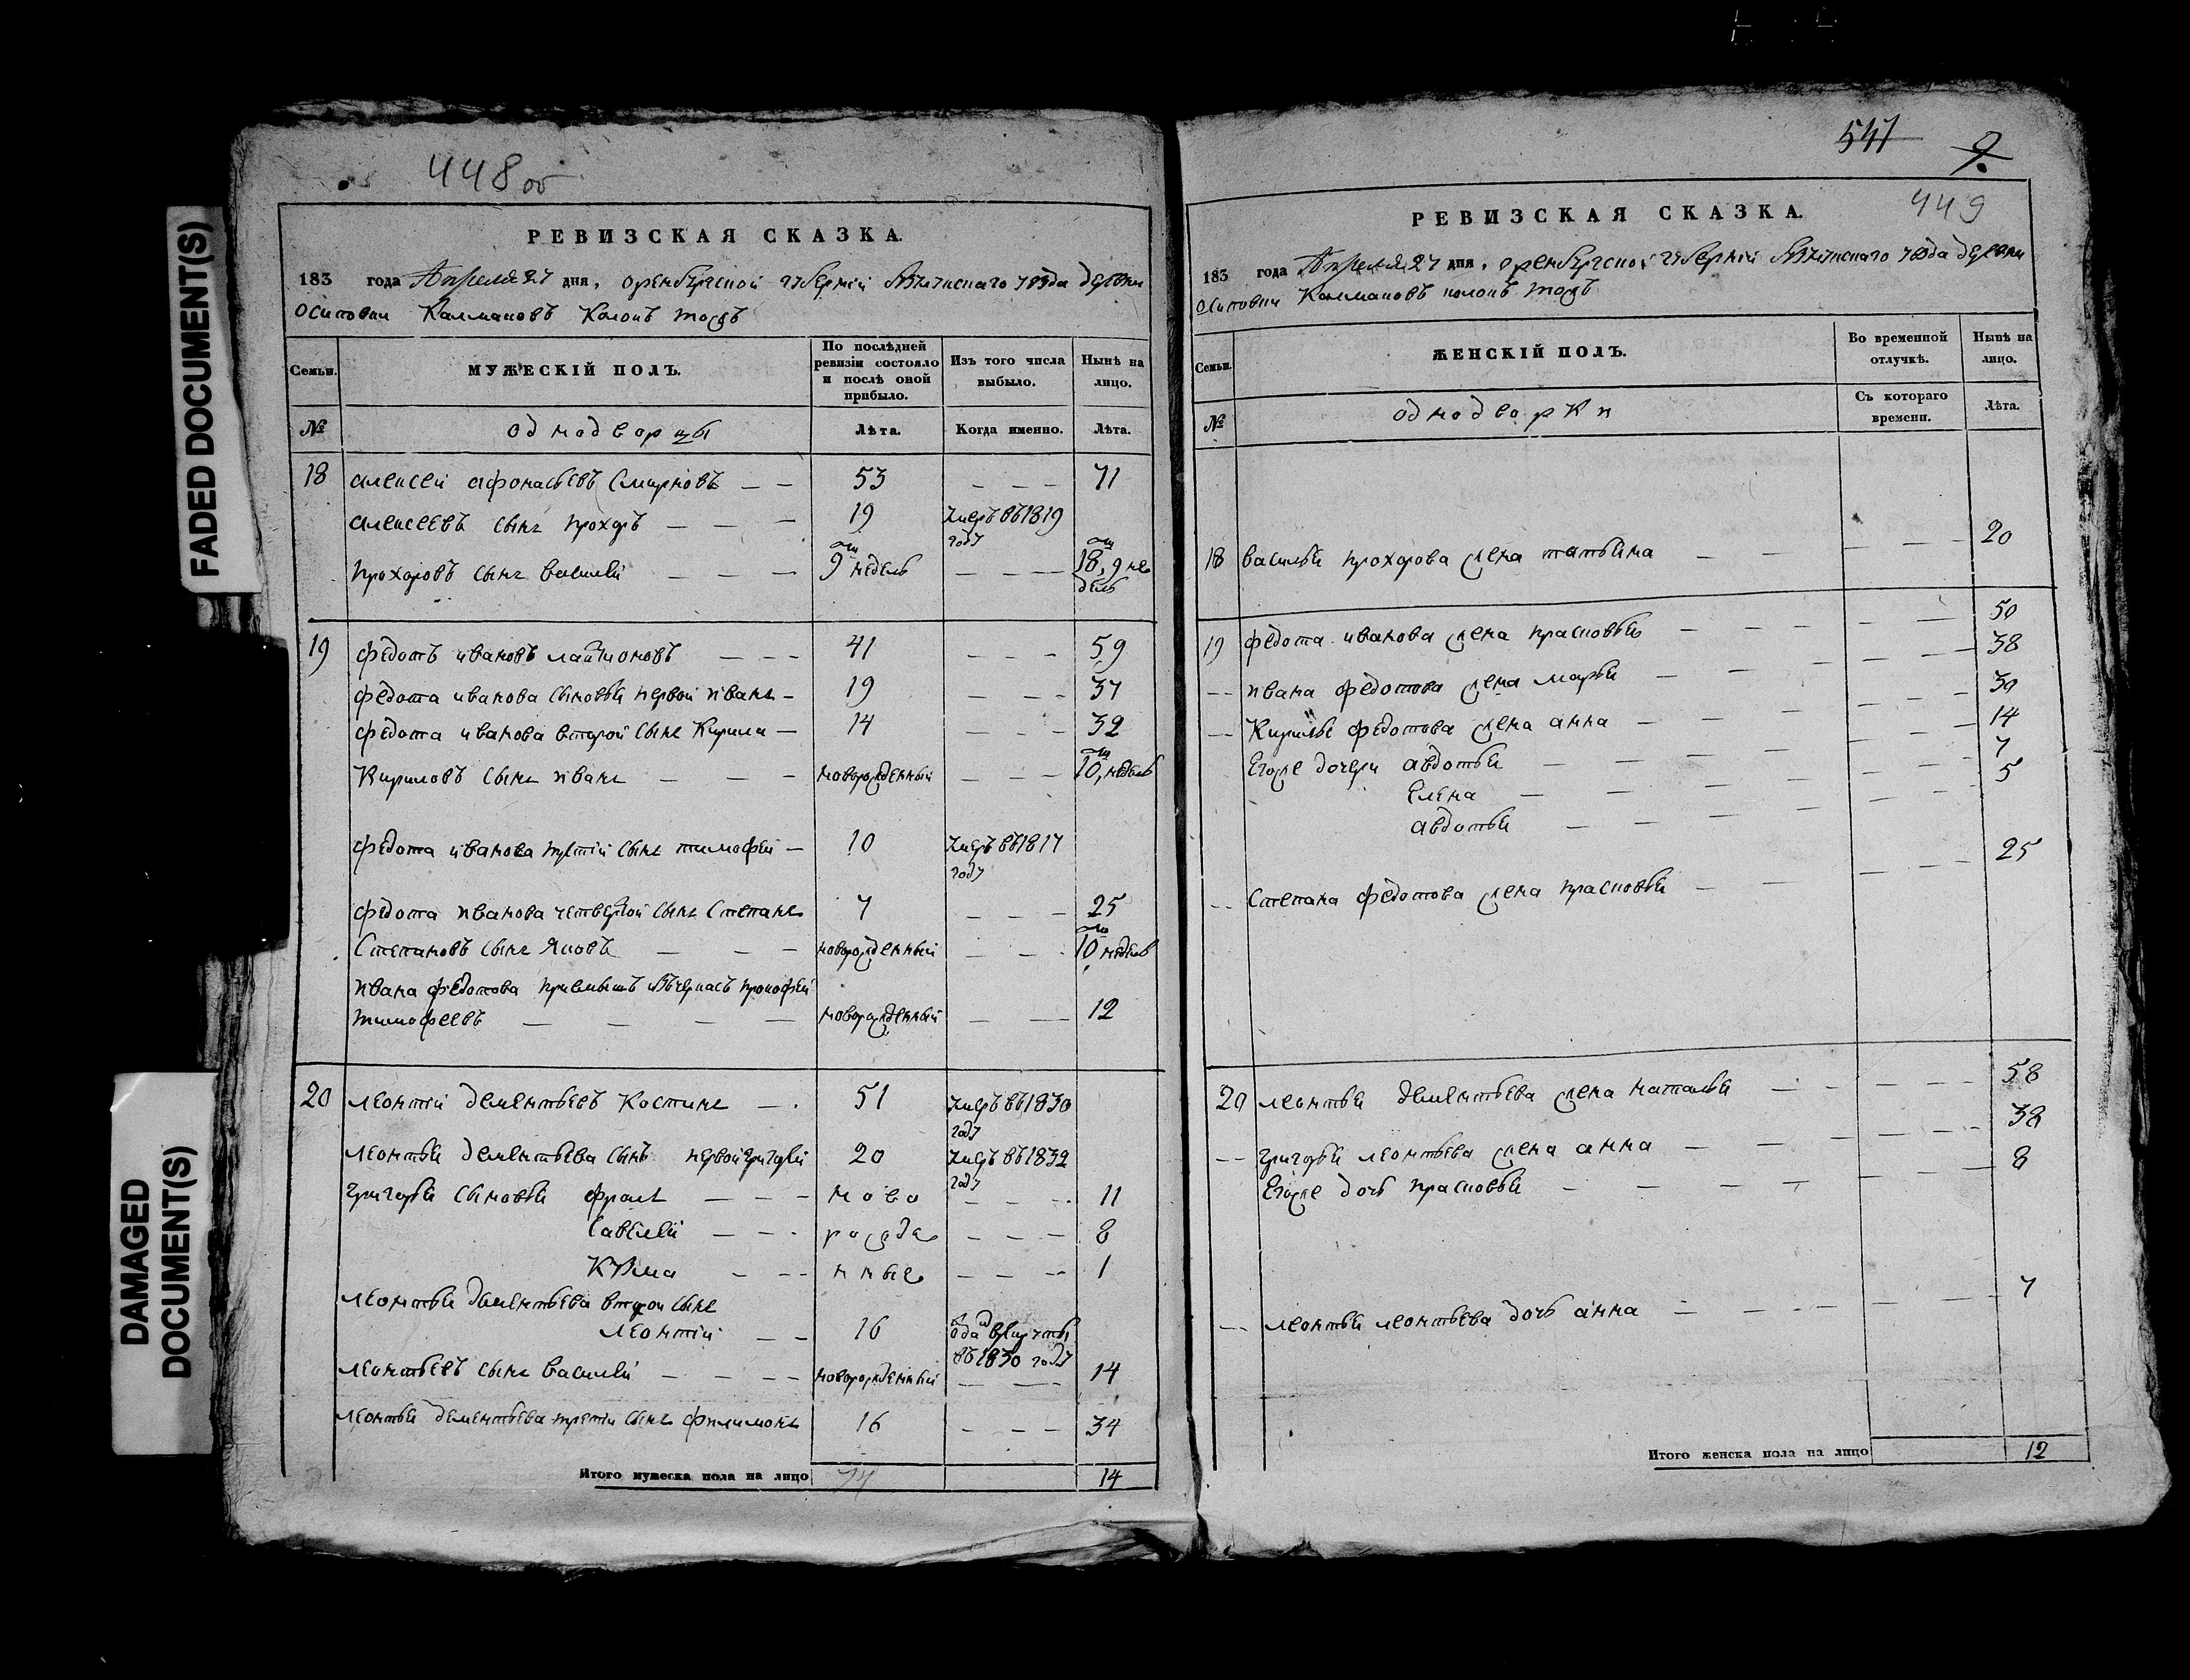 448 об
РЕВИЗСКАЯ СКАЗКА.
183 года Апреля 27 дня, оренбургской губерний уезда деревни
осиповки Калмаковъ Колокъ тожъ
Семьи.
МУЖЕСКІЙ ПОЛЪ.
По послѣдней
ревизіи состояло
и послѣ оной
прибыло.
Изъ того числа
выбыло.
Нынѣ на
лицо.
№
однодворцы
Лѣта.
Когда именно.
Лѣта.
18 алексей афонасьевъ Смирновъ — — 53 — — — 71
алексеевъ сынъ прохоръ — — — 19 умеръ въ 1819
году
прохоровъ сынъ василей — — — 9 недель — — — 18, 9 не
дель
19 федотъ ивановъ — — — 41 — — — 59
федота иванова сыновьи первой иванъ — 19 — — — 37
федота иванова второй сынъ Кирила — 14 — — — 32
Кириловъ сынъ иванъ — — — новорожденный — — — 10, недель
федота иванова третій сынъ тимофей — 10 умеръ въ 1817
году
федота иванова четвертой сынъ Степанъ 7 — — — 25
Степановъ сынъ яковъ — — — новорожденный — — — 10 недель
ивана федотова приемышъ прокофей
тимофеевъ — — — — новорожденный — — 12
20 леонтій дементьевъ Костинъ — . 51 умеръ въ 1830
году
леонтьи дементьева сынъ первой григорей 20 умеръ въ 1832
году
григорьи сыновьи фролъ — — — ново — — — 11
Савелий — — — рожде — — — 8
Кузма — — — нные — — — 1
леонтьи дементьева второй сынъ
леонтій — — 16 отдан в рекруты
въ 1830 году
леонтьевъ сынъ василей — — — — новорожденный — — 14
леонтьи дементьева третій сынъ филимонъ 16 — — — 34
Итого мужеска пола на лицо 14
541
9.
449
РЕВИЗСКАЯ СКАЗКА.
183 года Апреля 27 дня, оренбургской губерний уезда деревни
осиповки Калмаковъ колокъ тожъ
Семьи.
ЖЕНСКІЙ ПОЛЪ.
Во временной
отлучкѣ.
Нынѣ на
лицо.
№
однодворки
Съ котораго
времени.
Лѣта.
18 васильи прохорова жена татьяна — — — — — 20
19 федота иванова жена прасковья — — — — — 50
— — ивана федотова жена марьи — — — — — 38
— — Кирилы федотова жена анна — — — — — 30
Егоже дочери авдотьи — — — — — 14
Елена — — — — — 7
авдотьи — — — — — 5
— — Степана федотова жена прасковьи — — — — — 25
20 леонтьи дементьева жена наталья — — — — — 58
— — григорьи леонтьева жена анна — — — — — 38
Егоже дочь прасковьи — — — — — 8
— — леонтьи леонтьева дочь анна — — — — — 7
Итого женска пола на лицо 12
FADED DOCUMENT(S)
DAMAGED
DOCUMENT(S)